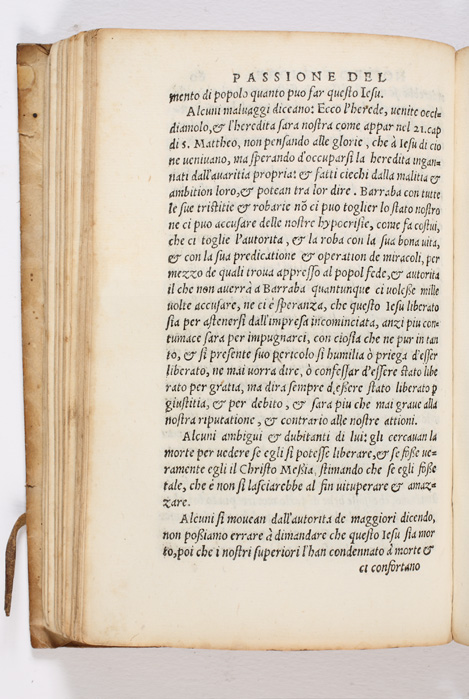 PASSIONE DEL
mento di popolo quanto puo far questo Iesu.
Alcuni malvaggi diceano: Ecco l'herede, venite occi-
diamolo, & l'heredita sara nostra come appar nel 21. cap
di s. Mattheo, non pensando alle glorie, che à Iesu di cio
ne venivano, ma sperando d'occuparsi la heredita ingan-
nati dall'avaritia propria: & fatti ciechi dalla malitia &
ambition loro, & potean tra lor dire. Barraba con tutte
le sue tristitie & robarie nō ci puo toglier lo stato nostro
ne ci puo accusare delle nostre hypocrisie, come fa costui,
che ci toglie l'autorita, & la roba con la sua bona uita,
& con la sua predicatione & operation de miracoli, per
mezzo de quali troua appresso al popol fede, & autorita
il che non auerrà a Barraba quantunque ci uolesse mille
uolte accusare, ne ci è speranza, che questo Iesu liberato
sia per astenersi dall'impresa incominciata, anzi piu con-
tumace sara per impugnarci, con ciosia che ne pur in tan
to, & si presente suo pericolo si humilia ò priega d'esser
liberato, ne mai uorra dire, ò confessar d'essere stato libe
rato per gratia, ma dira sempre d'essere stato liberato p
giustitia, & per debito, & sara piu che mai graue alla
nostra riputatione, & contrario alle nostre attioni.
Alcuni ambigui & dubitanti di lui: gli cercauan la
morte per uedere se egli si potesse liberare, & se fosse ue-
ramente egli il Christo Messia, stimando che se egli fosse
tale, che è non si lasciarebbe al fin uituperare & amaz-
zare.
Alcuni si moueàn dall'autorita de maggiori dicendo,
non possiamo errare à dimandare che questo Iesu sia mor
to, poi che i nostri superiori l'han condennato à morte &
ci confortano